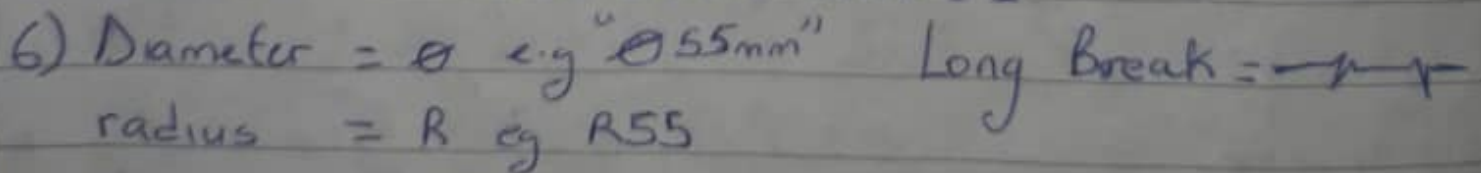 6) Diameter = ⌀ e.g "⌀55mm" Long Break =
radius = R eg R55